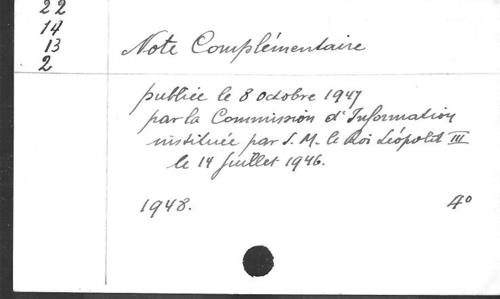 22
14
13
2
Note Complémentaire
publiée le 8 octobre 1947
par la Commission d'Information
instituée par S. M. le Roi Léopold III
le 14 juillet 1946.
1948.
4°